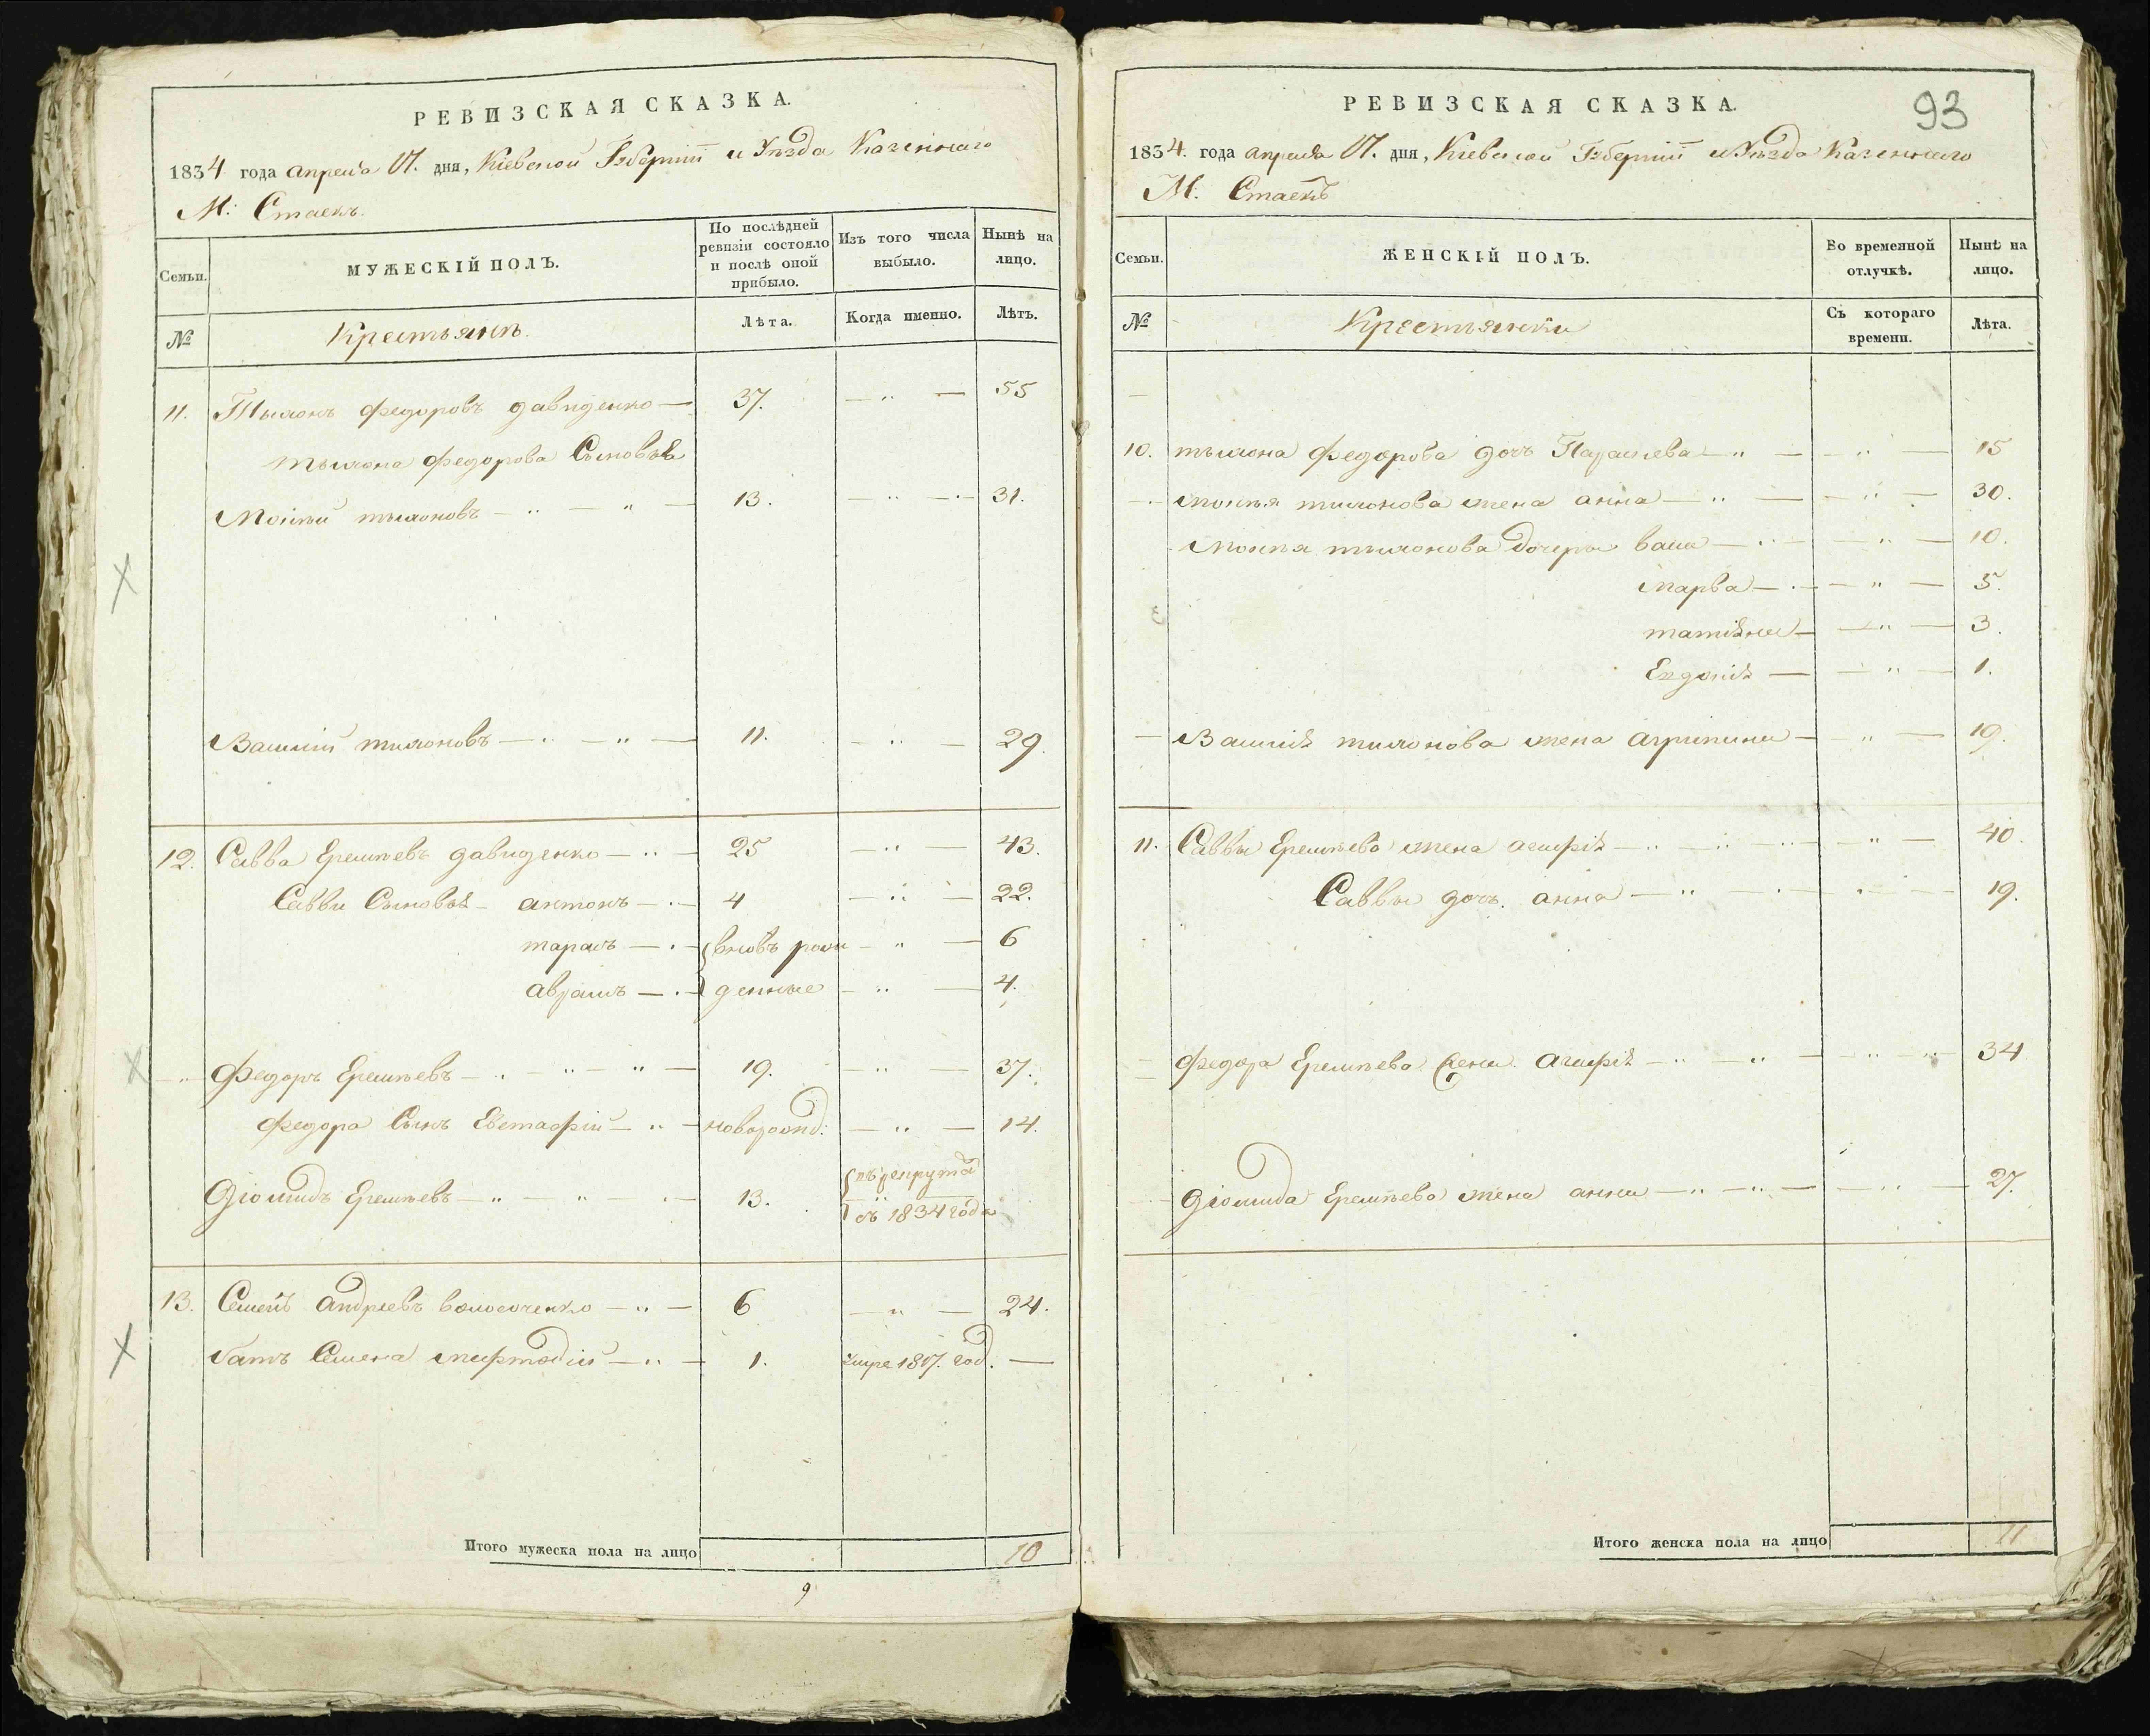 РЕВИЗСКАЯ СКАЗКА.
1834 года апреля 17. дня, Кіевской Губерніи и Уѣзда Казеннаго
М: Стаекъ.
Семьи.
МУЖЕСКІЙ ПОЛЪ.
По послѣдней ревизіи состояло и послѣ оной прибыло.
Изъ того числа выбыло.
Нынѣ на лицо.
№
Крестьянъ.
Лѣта.
Когда именно.
Лѣтъ.
11. Тихонъ федоровъ давиденко — 37. — " — 55
тихона федорова Сыновья
Мойсѣй тихоновъ — " — " — 13. — " — 31.
Василий тихоновъ — " — " — 11. — " — 29.
12. Савва Еремѣевъ давиденко — " — 25 — " — 43.
Саввы Сыновья — антонъ — 4 — " — 22.
тарасъ — вновь рож — " — 6
аврамъ — денные — " — 4.
— " — Федоръ Еремѣевъ — " — " — " — 19. — " — 37.
федора Сынъ Евстафій — " — новорожд: — " — 14.
Діомидъ Еремѣевъ — " — " — 13. въ рекрута
съ 1834 года
13. Семенъ андреевъ — " — 6 — " — 24.
братъ Семена — " — 1. умре 1817. год. —
Итого мужеска пола на лицо 10
9
93
РЕВИЗСКАЯ СКАЗКА.
1834. года апреля 17. дня, Кіевской Губерніи и Уѣзда Казеннаго
М. Стаекъ
Семьи.
ЖЕНСКІЙ ПОЛЪ.
Во временной отлучкѣ.
Нынѣ на лицо.
№
Крестьянки
Съ котораго времени.
Лѣта.
10. тихона федорова дочь Параскева — " — " — 15
мойсѣя тихонова жена анна — " — " — 30.
мойсея тихонова дочери васа — " — " — 10.
марва — " — 5.
татіяна — " — 3.
Евдокія — " — 1.
— Василія тихонова жена агрипина — " — 19.
11. Саввы Еремѣева жена агафія — " — " — " — 40.
Саввы дочь анна — " — " — 19.
федора Еремѣева жена агафія — " — " — " — 34
діомида Еремѣева жена анна — " — " — " — 27.
Итого женска пола на лицо 11